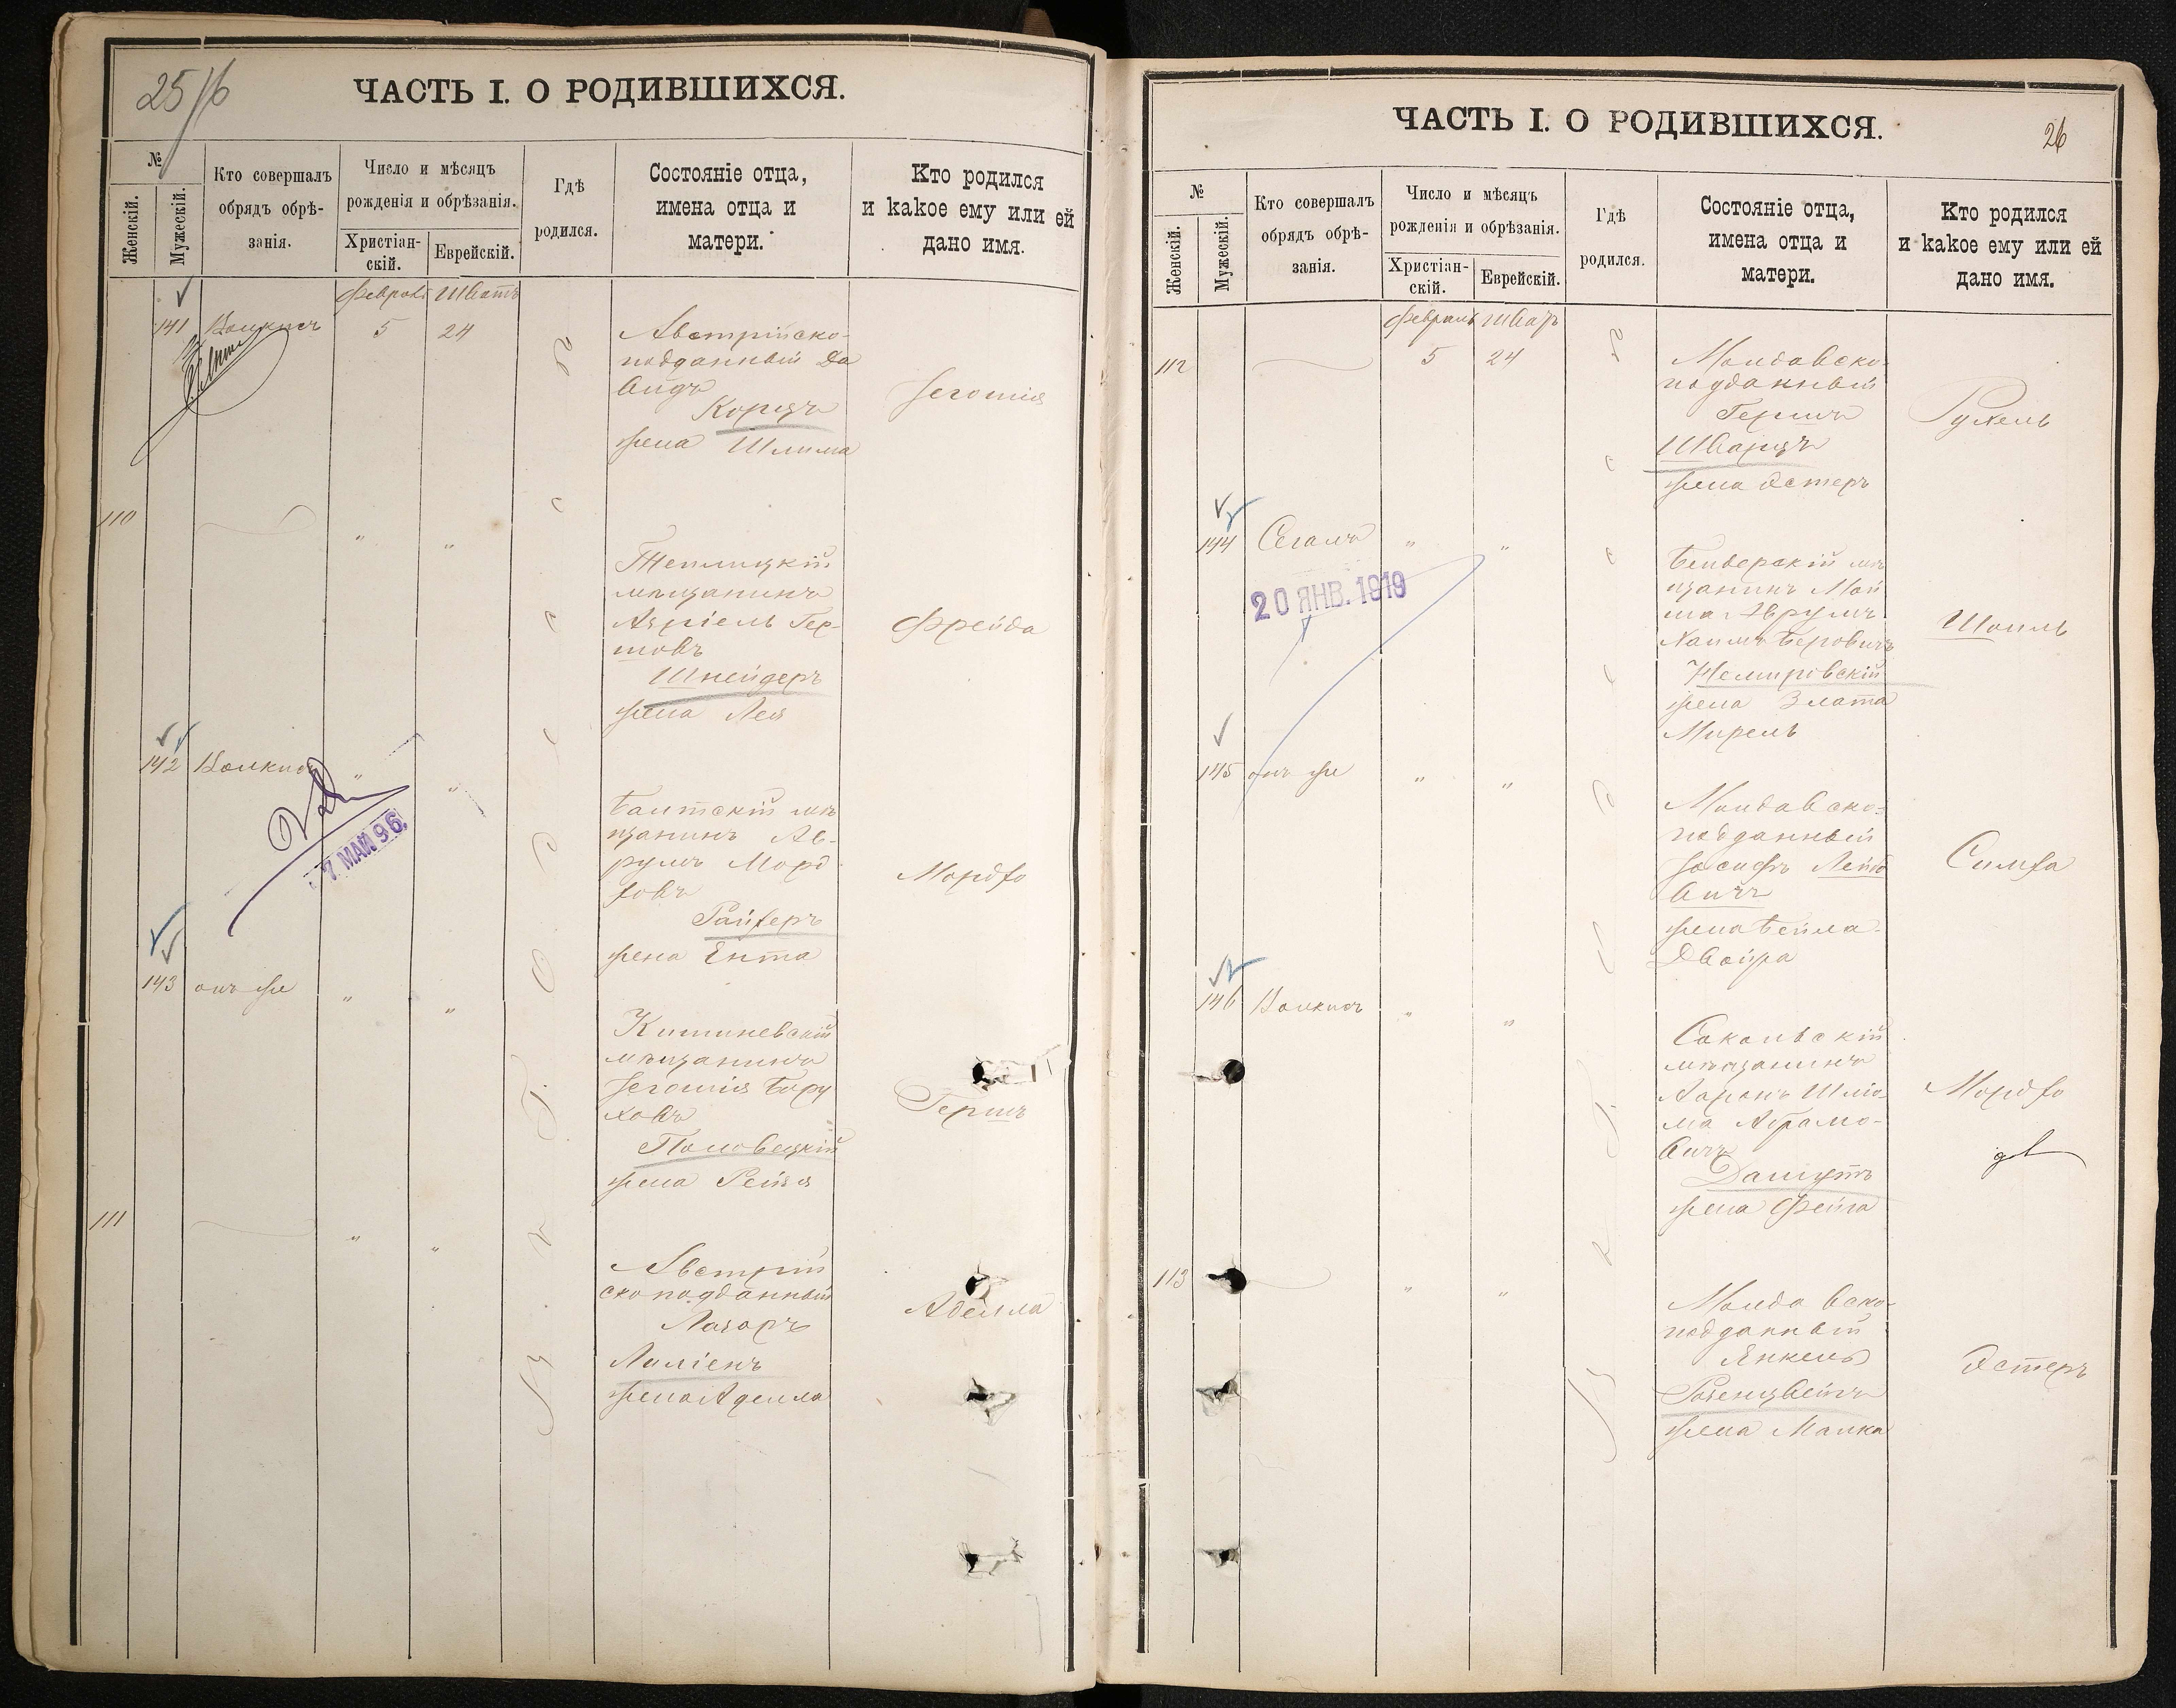 25/16
ЧАСТЬ I. О РОДИВШИХСЯ.
№
Женскій.
Мужескій.
Кто совершалъ
обрядъ обрѣ-
занія.
Число и мѣсяцъ
рожденія и обрѣзанія.
Христіан-
скій.
Еврейскій.
Гдѣ
родился.
Состояніе отца,
имена отца и
матери.
Кто родился
и какое ему или ей
дано имя.
Шватъ
141
5
24
Австрійско-
подданный Да
видъ
Корнъ
жена Шлима
110
"
"
Теплицкій
мѣщанинъ
Азріель Гер-
шовъ
Шнейдеръ
жена Лея
Фрейда
142
"
"
Балтскій мѣ
щанинъ Ав-
румъ Морд
ковъ
Райхеръ
жена Ента
Мордко
17. МАЙ 96.
143 онъ же
"
"
Кишиневскій
мѣщанинъ
Бору
ховъ
Половецкій
жена Рейзя
Гершъ
111
"
"
Австрій
скоподданный
Лазаръ
Лиліенъ
жена Аделла
Аделла
ЧАСТЬ I. О РОДИВШИХСЯ.
26
№
Женскій.
Мужескій.
Кто совершалъ
обрядъ обрѣ-
занія.
Число и мѣсяцъ
рожденія и обрѣзанія.
Христіан-
скій.
Еврейскій.
Гдѣ
родился.
Состояніе отца,
имена отца и
матери.
Кто родился
и какое ему или ей
дано имя.
Февраль Шватъ
112
5
24
Молдавско-
подданный
Гершъ
Шварцъ
жена Эстеръ
Рухель
144 Сегалъ
"
"
20 ЯНВ. 1919
Бендерскій мѣ
щанинъ Мой
ша Аврумъ
Хаимъ Беровичъ
Немировскій
жена Злата
Мирель
Шоиль
145 онъ же
"
"
Молдавско-
подданный
Іосифъ Лейбо
вичъ
жена Бейла
Двойра
Симха
146
"
"
Сокольскій
мѣщанинъ
Ааронъ Шлio-
ма Абрамо-
вичъ
жена Фейга
Мордко
113
"
"
Молдавско-
подданный
Янкель
Розенцвейгъ
жена Малка
Эстеръ